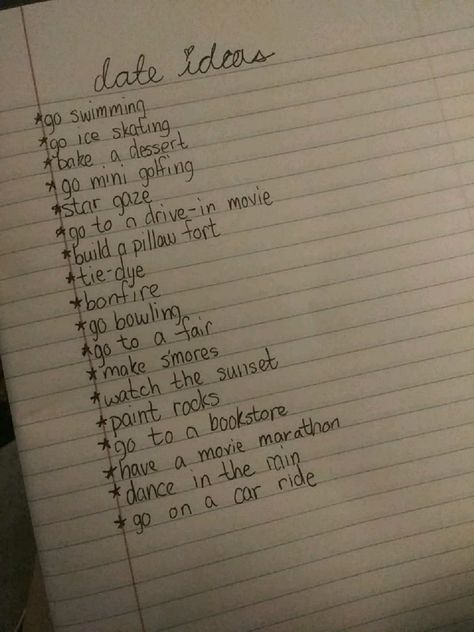 date ideas
*go swimming
*go ice skating
*bake a dessert
*go mini golfing
*star gaze
*go to a drive-in movie
*build a pillow fort
*tie-dye
*bonfire
*go bowling
*go to a fair
*make s'mores
*watch the sunset
*paint rocks
*go to a bookstore
*have a movie marathon
*dance in the rain
*go on a car ride